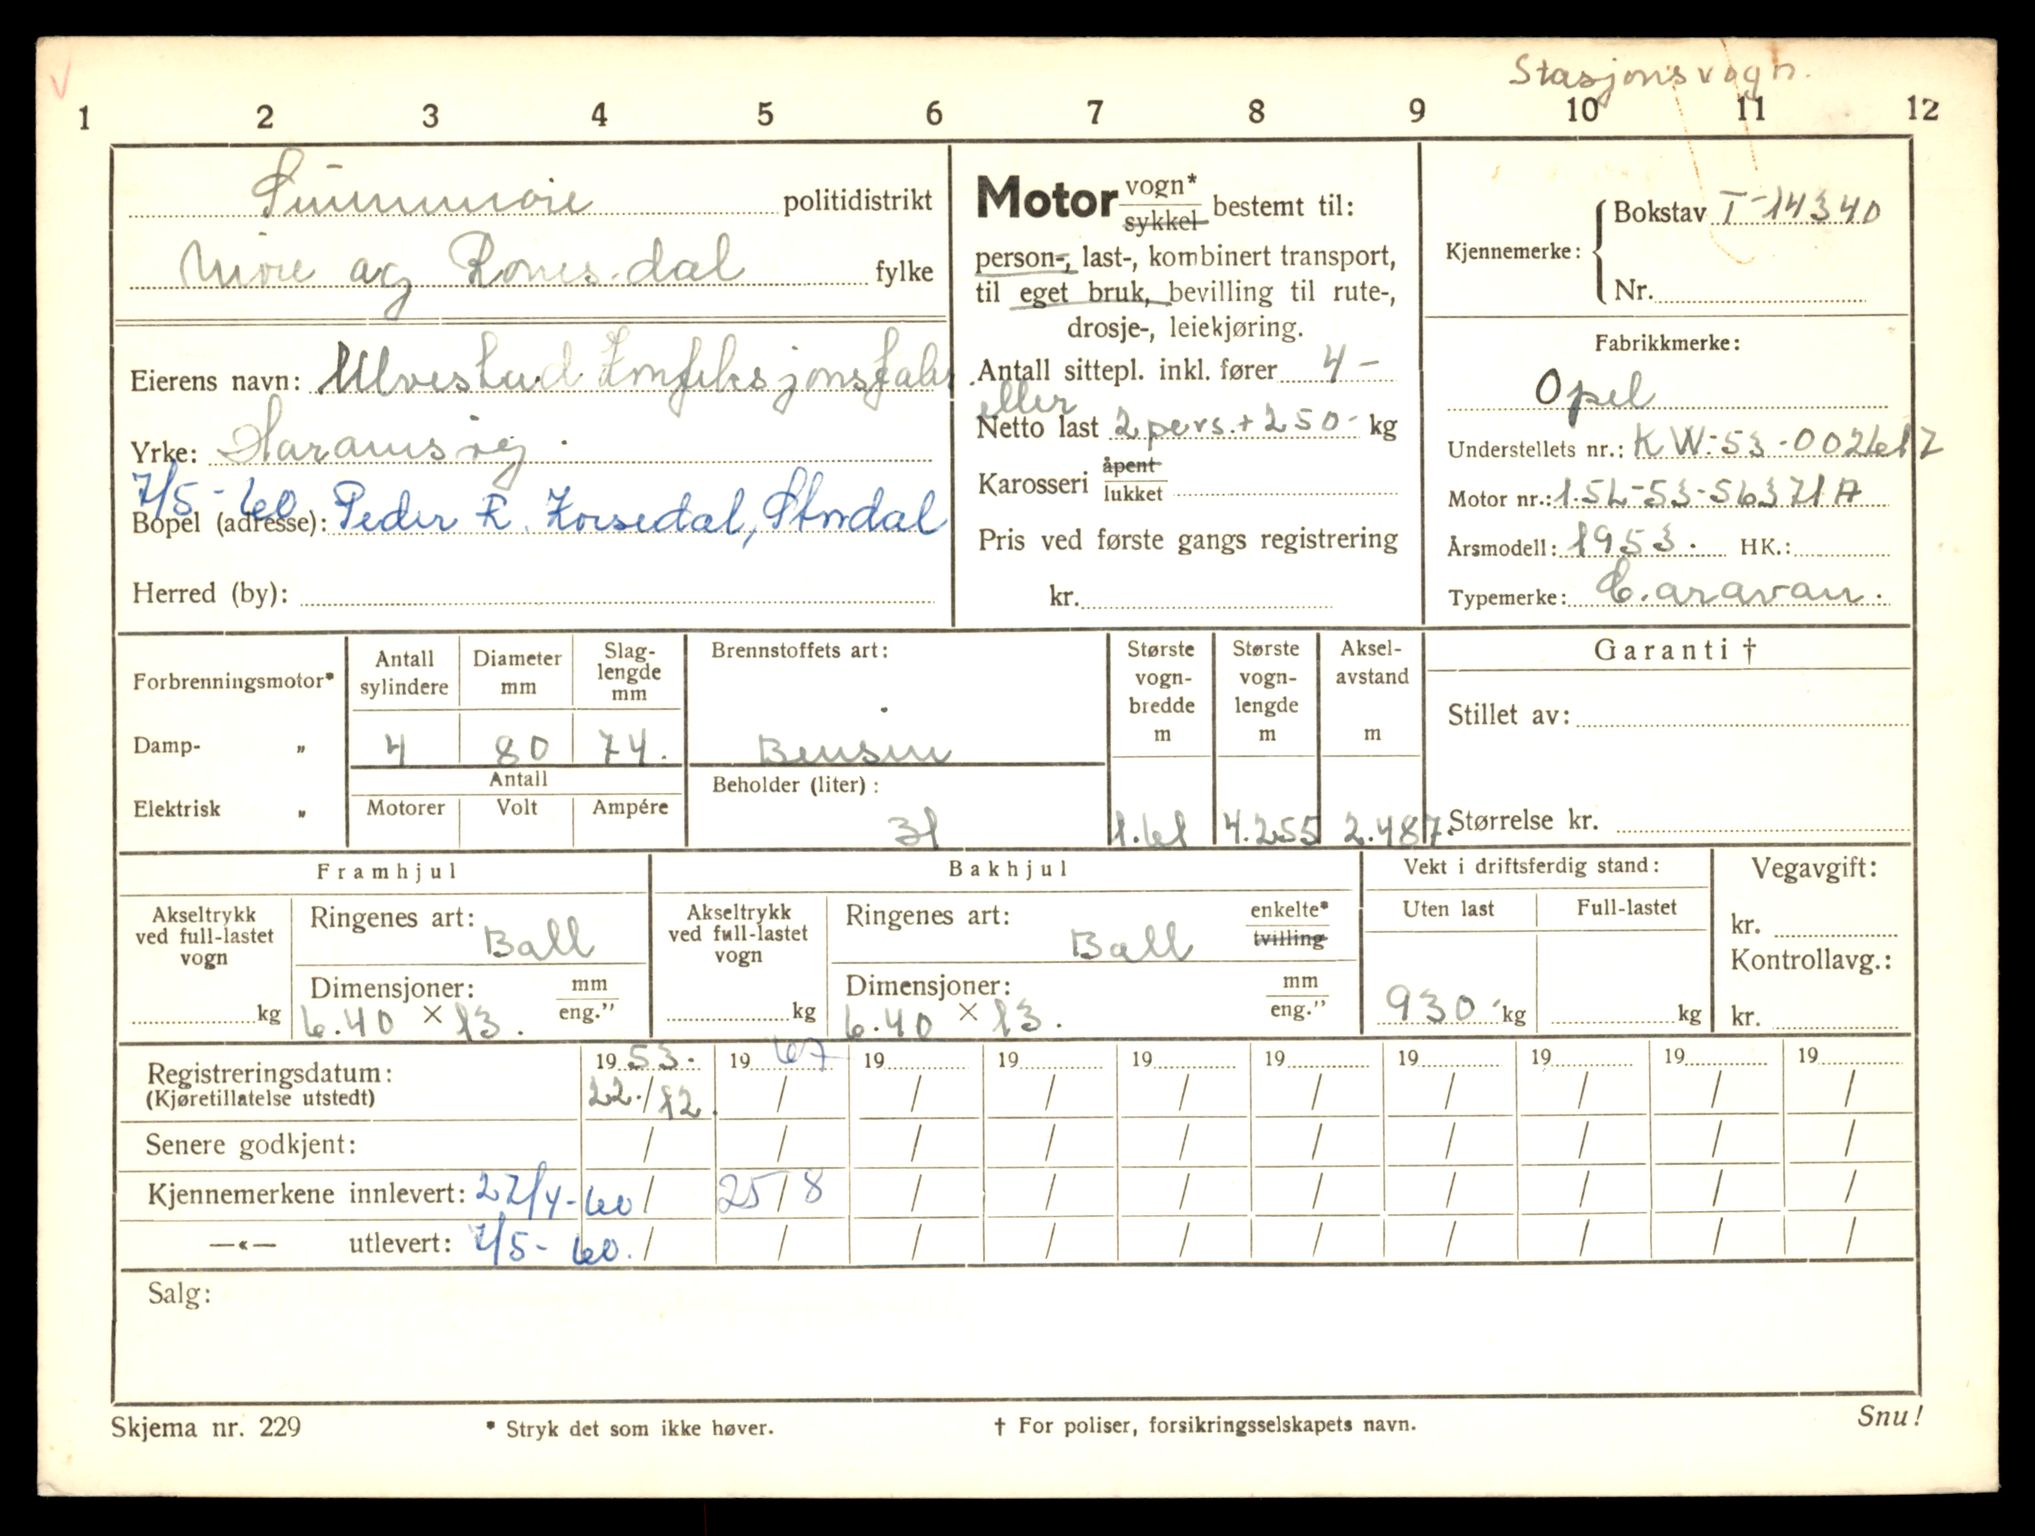 Stasjonsvogn.
1 2 3 4 5 6 7 8 9 10 11 12
Sunnmøre politidistrikt
Møre og Romsdal fylke
Eierens navn: Ulvestad Konfeksjonsfabr.
Yrke: Haramsøy.
7/5-60 Peder K. Korsedal, Stordal
Bopel (adresse):
Herred (by):
Motor vogn* / sykkel bestemt til:
person-, last-, kombinert transport,
til eget bruk, bevilling til rute-,
drosje-, leiekjøring.
Antall sittepl. inkl. fører 4 -
eller
Netto last 2 pers. + 250- kg
Karosseri åpent / lukket
Pris ved første gangs registrering
kr.
Kjennemerke: Bokstav T-14340
Nr.
Fabrikkmerke:
Opel
Understellets nr.: KW-53-002617
Motor nr.: 1.5L-53-56371A
Årsmodell: 1953. HK.:
Typemerke: Caravan.
Forbrenningsmotor*
Damp- „
Elektrisk „
Antall sylindere
Diameter mm
Slag- lengde mm
4 80 74.
Antall
Motorer Volt Ampére
Brennstoffets art:
Bensin
Beholder (liter):
31
Største vogn- bredde m
Største vogn- lengde m
Aksel- avstand m
1.61 4.255 2.487.
Garanti †
Stillet av:
Størrelse kr.
Framhjul
Akseltrykk ved full-lastet vogn
kg
Ringenes art: Ball
Dimensjoner: mm / eng.”
6.40 × 13.
Bakhjul
Akseltrykk ved full-lastet vogn
kg
Ringenes art: Ball enkelte* / tvilling
Dimensjoner: mm / eng.”
6.40 × 13.
Vekt i driftsferdig stand:
Uten last Full-lastet
930 kg kg
Vegavgift:
kr.
Kontrollavg.:
kr.
Registreringsdatum: 1953. 1967 19 19 19 19 19 19 19 19
(Kjøretillatelse utstedt) 22./12. / / / / / / / / /
Senere godkjent: / / / / / / / / / /
Kjennemerkene innlevert: 27/4-60 / 25/8 / / / / / / / /
—«— utlevert: 7/5-60. / / / / / / / / / /
Salg:
Skjema nr. 229 * Stryk det som ikke høver. † For poliser, forsikringsselskapets navn. Snu!